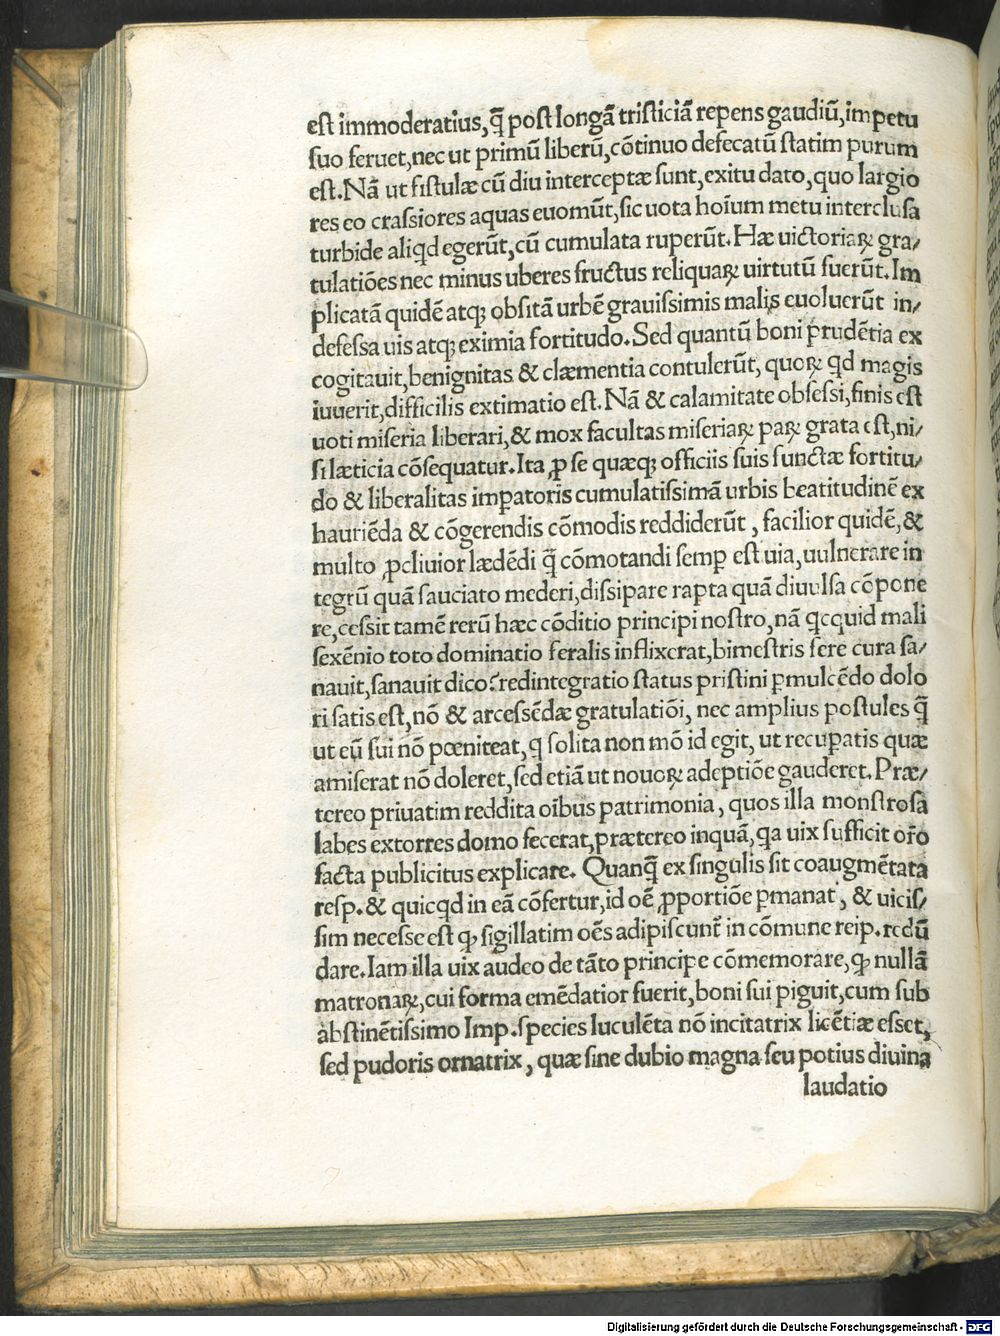 eſt immoderatius, q̃ poſt longã triſticiã repens gaudiũ, impetu
ſuo feruet, nec ut primũ liberũ, cõtinuo defecatũ ſtatim purum
eſt. Nã ut fiſtulæ cũ diu interceptæ ſunt, exitu dato, quo largio
res eo craſsiores aquas euomũt, ſic uota hoĩum metu intercluſa
turbide aliqd egerũt, cũ cumulata ruperũt. Hæ uictoriaꝝ gra/
tulatiões nec minus uberes fructus reliquaꝝ uirtutũ fuerũt. Im
plicatã quidẽ atqꝫ obſitã urbẽ grauiſsimis malis euoluerũt in/
defeſsa uis atqꝫ eximia fortitudo. Sed quantũ boni prudẽtia ex
cogitauit, benignitas & clæmentia contulerũt, quoꝝ qd magis
iuuerit, difficilis extimatio eſt. Nã & calamitate obſeſsi, finis eſt
uoti miſeria liberari, & mox facultas miſeriaꝝ paꝝ grata eſt, ni/
ſi læticia cõſequatur. Ita ꝓ ſe quæqꝫ officiis ſuis functæ fortitu/
do & liberalitas imꝑatoris cumulatiſsimã urbis beatitudinẽ ex
hauriẽda & cõgerendis cõmodis reddiderũt, facilior quidẽ, &
multo ꝓcliuior lædẽdi q̃ cõmotandi ſemꝑ eſt uia, uulnerare in
tegrũ quã ſauciato mederi, diſsipare rapta quã diuulſa cõpone
re, ceſsit tamẽ rerũ hæc cõditio principi noſtro, nã qcquid mali
ſexẽnio toto dominatio feralis inflixerat, bimeſtris fere cura ſa/
nauit, ſanauit dico? redintegratio ſtatus priſtini ꝑmulcẽdo dolo
ri ſatis eſt, nõ & arceſsẽdæ gratulatiõi, nec amplius poſtules q̃
ut eũ ſui nõ pœniteat, q ſolita non mõ id egit, ut recuꝑatis quæ
amiſerat nõ doleret, ſed etiã ut nouoꝝ adeptiõe gauderet. Præ/
tereo priuatim reddita oĩbus patrimonia, quos illa monſtroſa
labes extorres domo fecerat, prætereo inquã, qa uix ſufficit or̃o
facta publicitus explicare. Quanq̃ ex ſingulis ſit coaugmẽtata
reſp. & quicqd in eã cõfertur, id oẽ ꝓportiõe ꝑmanat, & uiciſ/
ſim neceſse eſt ꝙ ſigillatim oẽs adipiſcunt̃ in cõmune reip. redũ
dare. Iam illa uix audeo de tãto principe cõmemorare, ꝙ nullã
matronaꝝ, cui forma emẽdatior fuerit, boni ſui piguit, cum ſub
abſtinẽtiſsimo Imp. ſpecies luculẽta nõ incitatrix licẽtiæ eſset,
ſed pudoris ornatrix, quæ ſine dubio magna ſeu potius diuina
laudatio
Digitalisierung gefördert durch die Deutsche Forschungsgemeinschaft - DFG